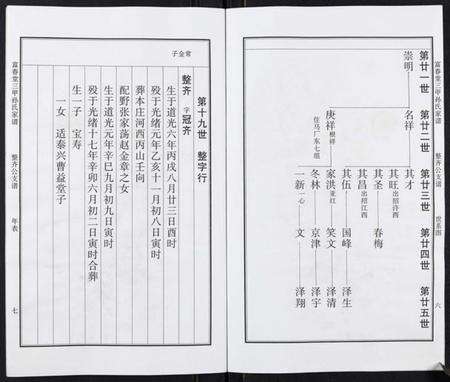 富春堂三甲孙氏家谱
整齐公支谱
世系图
六
第廿一世
第廿二世
第廿三世
第廿四世
第廿五世
崇明
名祥
其才
其旺出绍许西
其圣
春梅
其昌出绍江西
其伍
国峰
泽生
庚祥根祥
住马厂东七组
家洪亚红
笑文
泽清
冬林
京津
泽宇
一新一心
文
泽翔
富春堂三甲孙氏家谱
整齐公支谱
年表
七
第十九世 整字行
常金子
整齐 字冠齐
生于道光六年丙戌八月廿三日酉时
殁于光绪元年乙亥十一月初八日寅时
葬本庄河西丙山壬向
配野张家荡赵金章之女
生于道光元年辛巳九月初九日寅时
殁于光绪十七年辛卯六月初二日寅时合葬
生一子 宝寿
一女 适泰兴曹益堂子